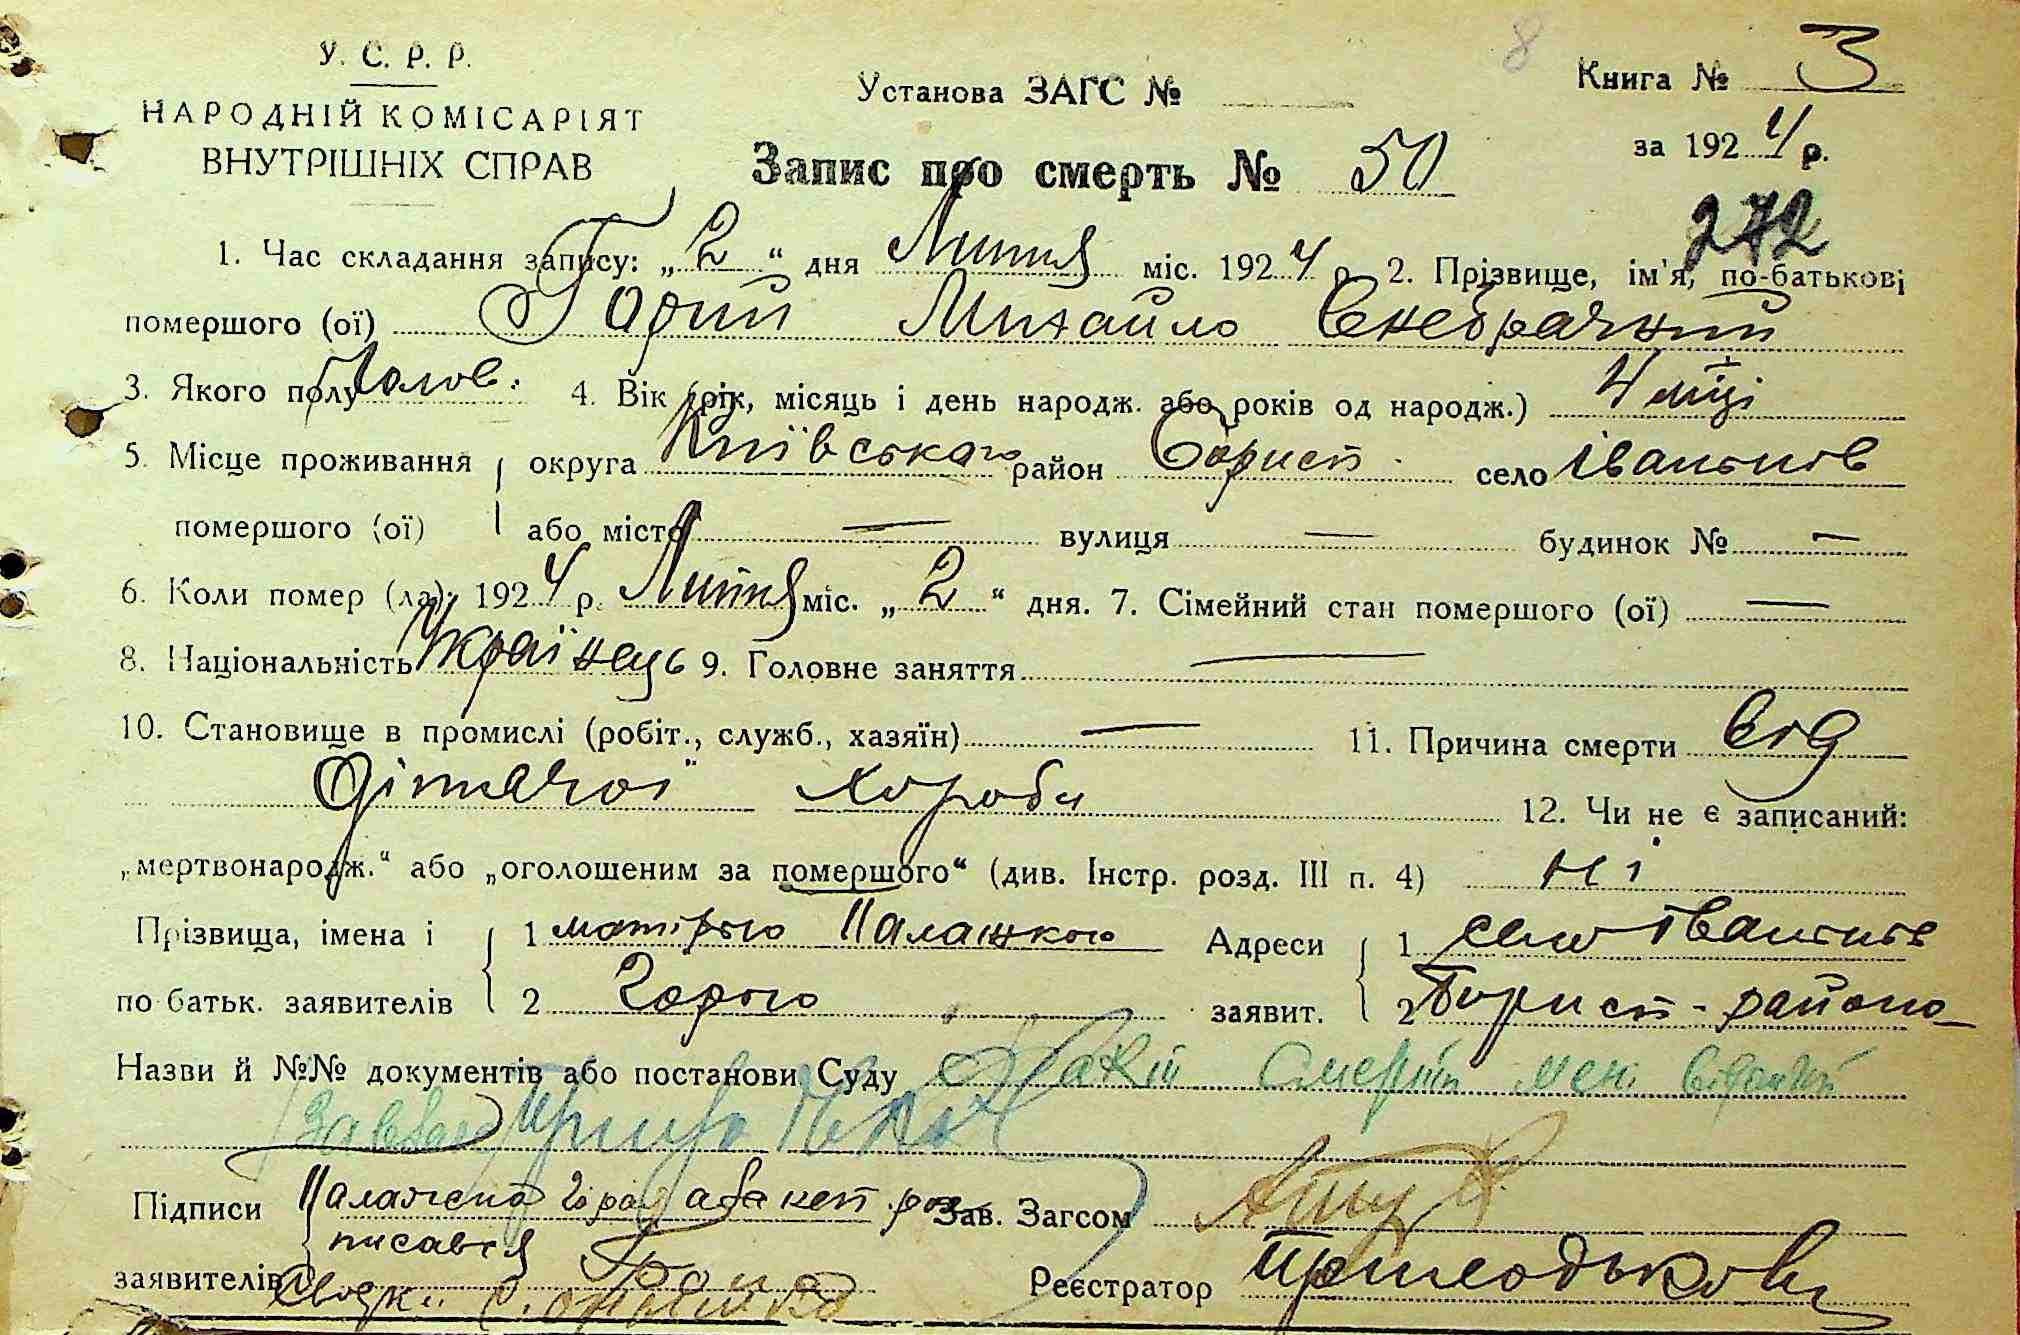 У. С. Р. Р.
НАРОДНІЙ КОМІСАРІЯТ
ВНУТРІШНІХ СПРАВ
Установа ЗАГС №
8
Книга № 3
за 1924 р.
Запис про смерть № 50
272
1. Час складання запису: „2“ дня Липня міс. 1924 р. 2. Прізвище, ім'я, по-батькові
помершого (ої) Горий Михайло
3. Якого полу Чолов. 4. Вік (рік, місяць і день народж. або років од народж.) 4 міці
5. Місце проживання округа Київська район Борисп. село Іваньків
помершого (ої) або місто — вулиця — будинок № —
6. Коли помер (ла): 1924 р. Липня міс. „2“ дня. 7. Сімейний стан помершого (ої) —
8. Національність Українець 9. Головне заняття —
10. Становище в промислі (робіт., служб., хазяїн) — 11. Причина смерти від
дітячої хороби 12. Чи не є записаний:
„мертвонародж.“ або „оголошеним за помершого“ (див. Інстр. розд. III п. 4) ні
Прізвища, імена і 1 матірью Палажкою Адреси 1 село Іваньків
по батьк. заявителів 2 Горою заявит. 2 Борисп. району
Назви й №№ документів або постанови Суду смерти мені
Підписи Палажка Гора а за неп. рос Зав. Загсом
писався
заявителів Реєстратор Приходькові